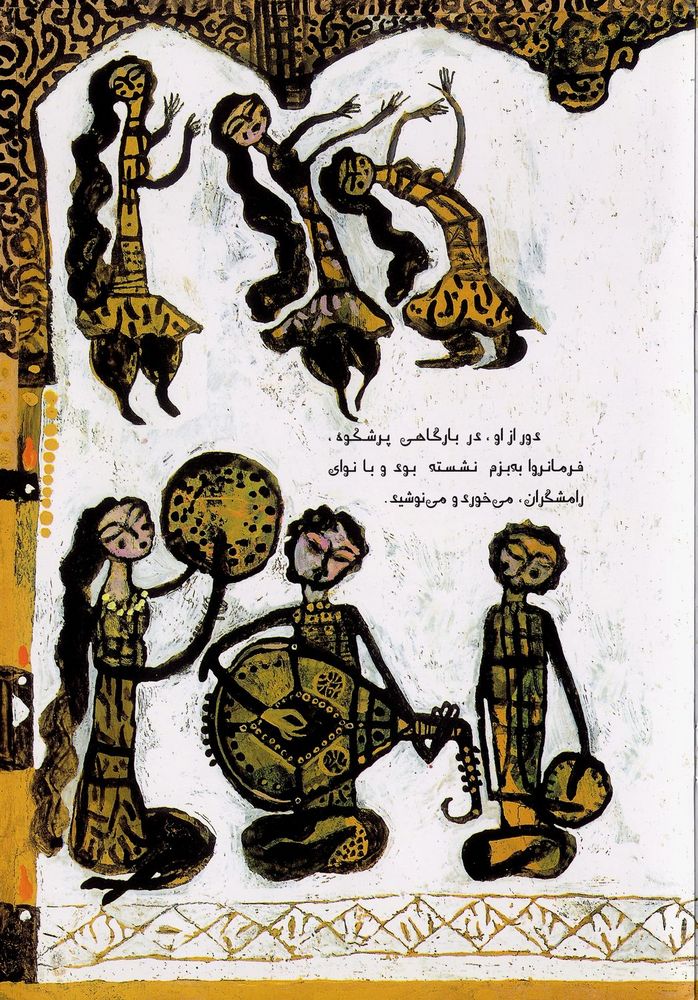 دور از او ، در بارگاهی پرشکوه ،
فرمانروا به‌بزم نشسته بود و با نوای
رامشگران ، می‌خورد و می‌نوشید .